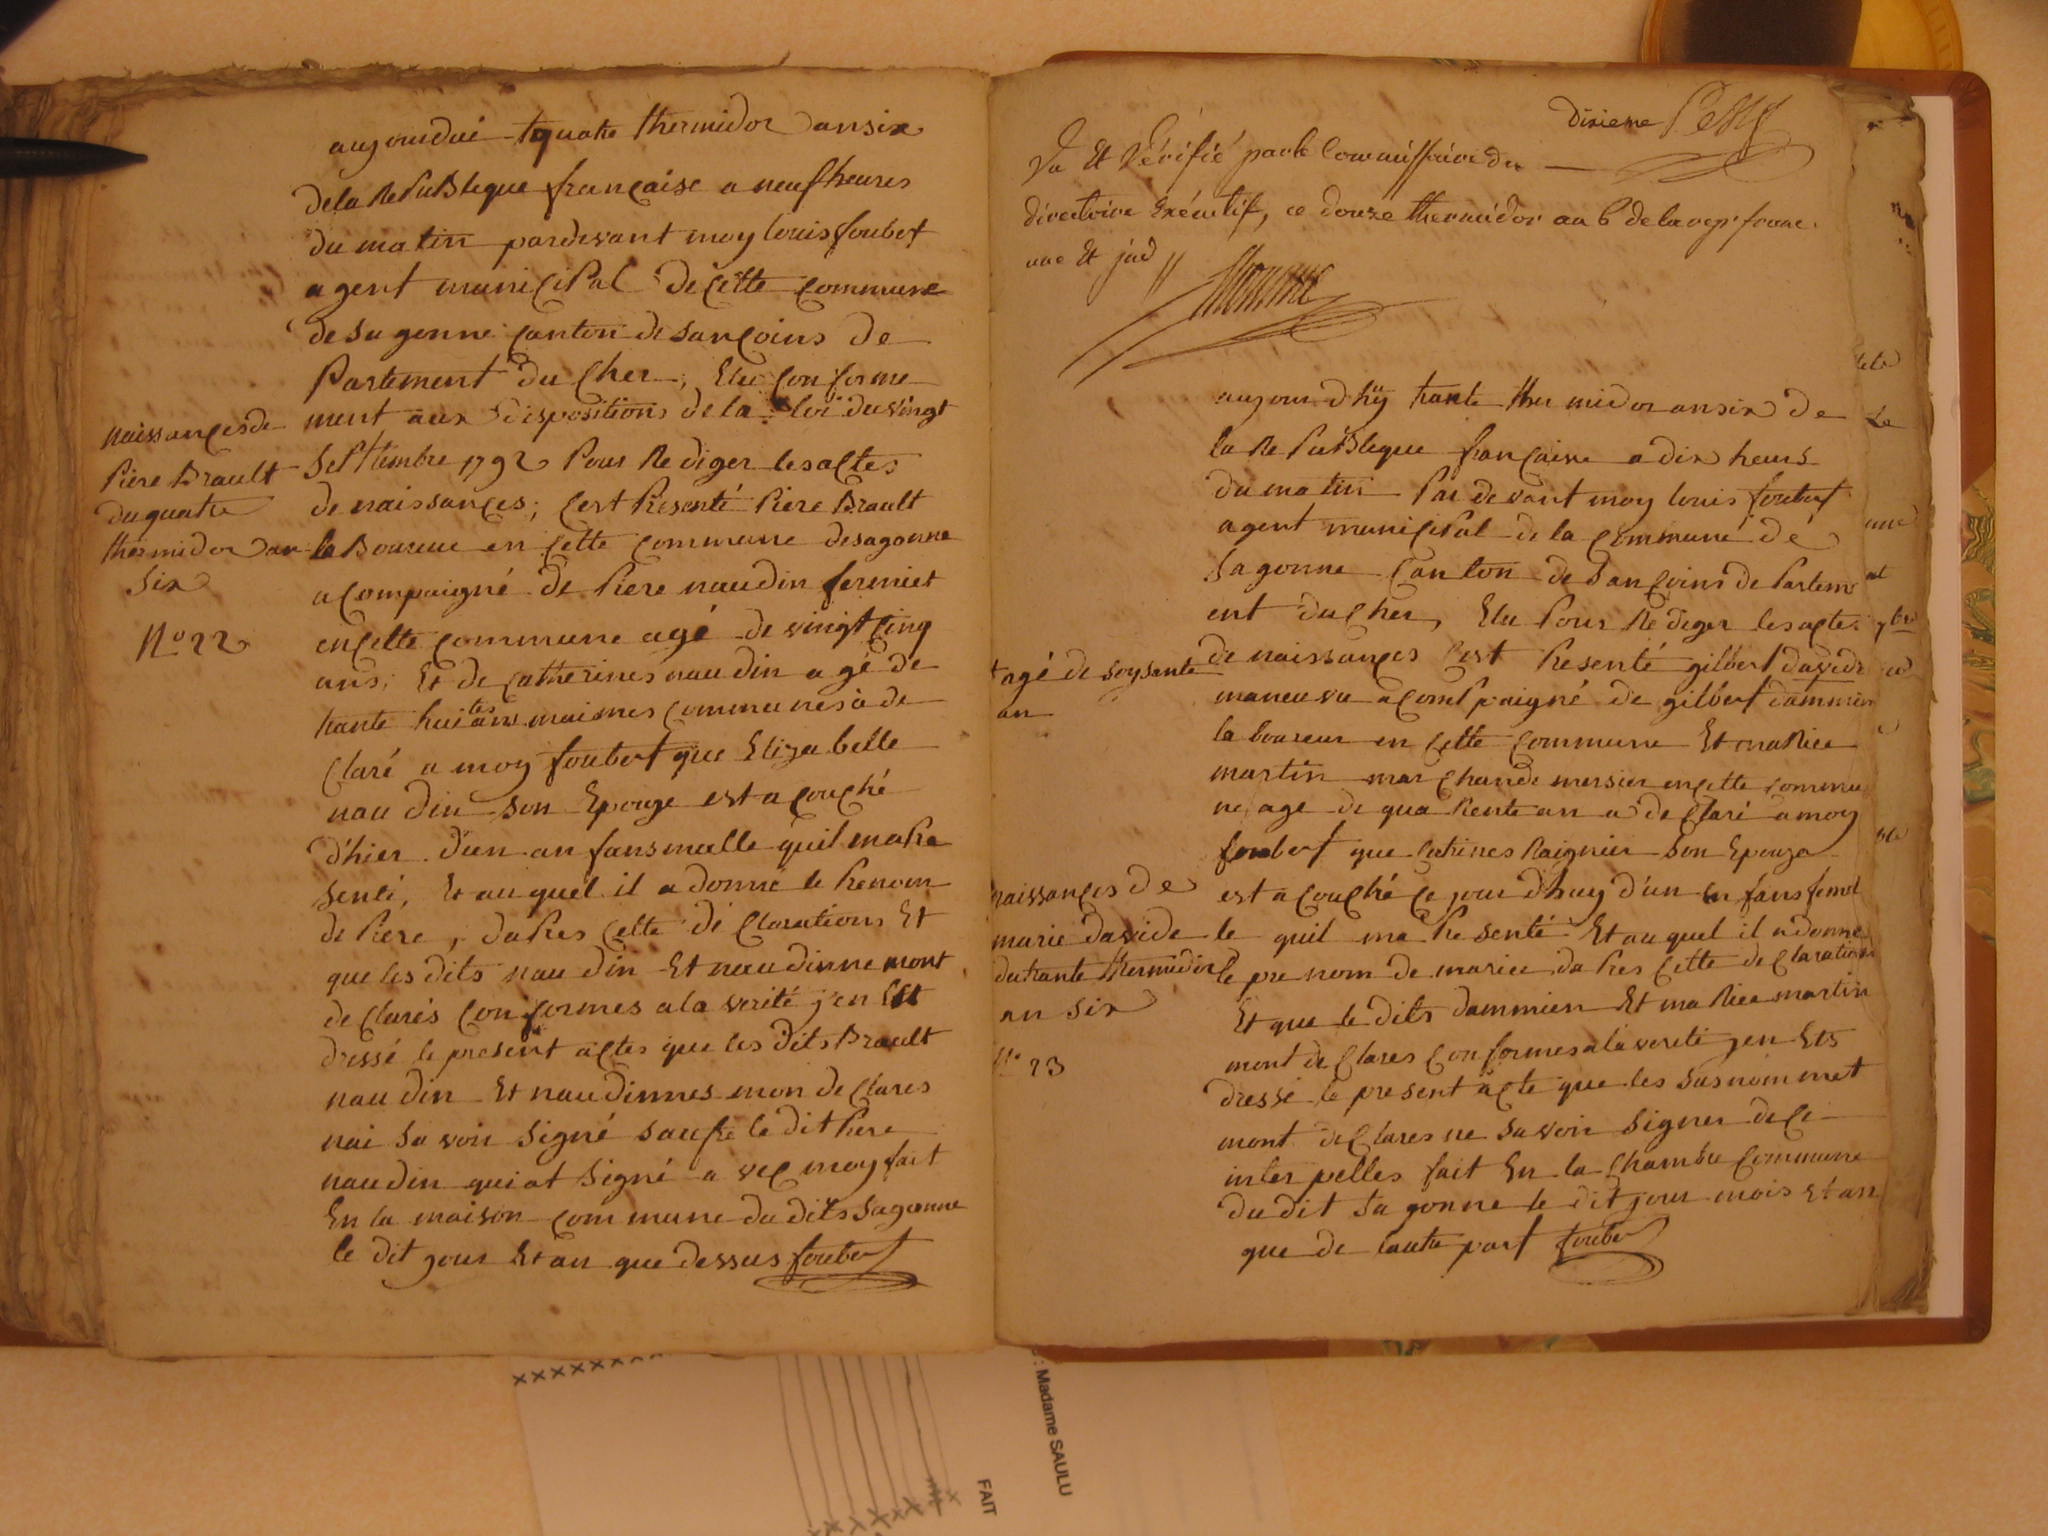 aujourdué quatre thermidor ansix
dela RePuBlique française a neuf heures
du matin pardevant moy louis foubert
agent municiPal de Cette Commune
de Sagonne Canton de Sancoins de
Partement du Cher, Elu Conforme
ment aux dispositions de la loi du vingt
SePttembre 1792 Pour Rediger les actes
de naissances; Cest Presenté Piere Brault
laBoureur en Cette Commune desagonne
acompaigné de Piere naudin fermier
en Cette Commune agé de vingt Cinq
ans; Et de Catherines naudin agé de
trante huit ans maismes Communes à de
Claré a moy foubert que Elizabelle
naudin son Epouze est acouché
d'hier d'un anfans malle quil maPre
senté, Et auquel il a donné le Prenom
de Piere, daPres Cette de Clarations Et
que les dits naudin Et naudinne mont
de Clarés Conformes a la verité j'en Est
dressé le present actes que les dits Brault
naudin Et naudinnes mon de Clares
nai savoir Signé saufre le dit Piere
naudin qui at Signé avec moy fait
En la maison Commune du dits Sagonne
le dit jour Et an que dessus foubert
naissances de
Piere Brault
du quatre
thermidor an
Six
No 22
dixieme
Vu Et Vérifié par le Commissaire du
directoire Exécutif, ce douze thermidor an 6 de la rep. franc.
une Et ind
aujourdhÿ trante thermidor ansix de
la RePuBlique françaisse a dix heurs
du matin Par devant moy louis foubert
agent municiPal de la Commune de
Sagonne Canton de Sancoins de Partem
ent du Cher, Elu Pour Rediger les actes
de naissances Cest Presenté gilbert davide
maneuvre acomPaigné de gilbert dammien
laboureur en Cette Commune Et mariee
martin marchande mersier en Cette Commu
ne age de quaRente an a de Claré a moy
foubert que Catrines Raignier Son Epouze
est acouché Ce jour dhuy d'un En fans femel
le quil ma Presenté Et auquel il adonné
le prenom de mariee daPres Cette de Claration
Et que le dits dammien Et mariee martin
mont de Clares Conformes a la verité jen Ets
dressé le present acte que les Susnommet
mont deClares ne Savoir Signer deCe
interpelles fait En la Chambre Commune
du dit Sagonne le dit jour mois Et an
que de lautre part foubert
+ agé de soysante
an
naissances de
marie davide
du trante thermidor
an Six
No 23
: Madame SAULU
FAIT